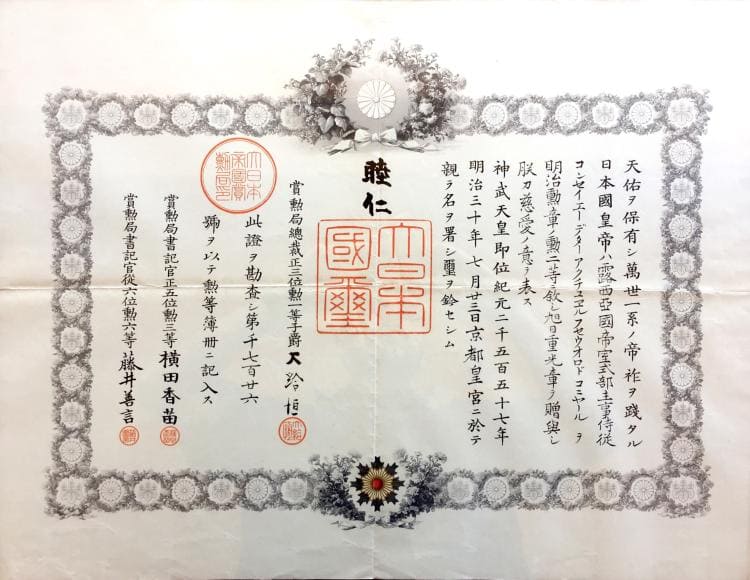 天佑ヲ保有シ萬世一系ノ帝祚ヲ踐タル
日本國皇帝ハ露西亞國帝室式部主事侍従
コンセイエーデターアクチュエルフセウオロドコニヤール ヲ
明治勳章ノ勳二等敘シ旭日重光章ヲ贈與シ
朕カ慈愛ノ意ヲ表ス
神武天皇即位紀元二千五百五十七年
明治三十年七月廿三日京都皇宮ニ於テ
親ラ名ヲ署シ璽ヲ鈐セシム
睦仁
大日本國璽
賞勲局總裁正三位勲一等子爵大給恒
大日本帝國賞勳局印
此證ヲ勘査シ第千七百廿六
號ヲ以テ勲等簿冊ニ記入ス
賞勲局書記官正五位勲三等橫田香苗
賞勲局書記官從六位勲六等藤井善言